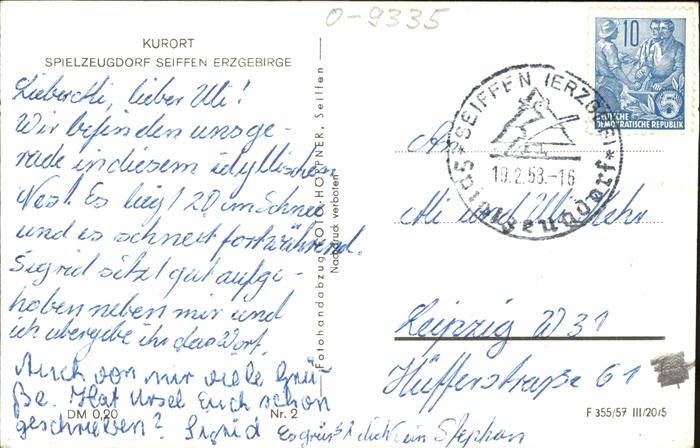 O-9335
KURORT
SPIELZEUGDORF SEIFFEN ERZGEBIRGE
Lieber lieber Uli!
Wir befinden uns ge-
rade in diesem idyllischen
Nest. Es liegt 20 cm Schnee
und es schneit fortwährend.
Sigrid sitzt gut aufge-
hoben neben mir und
ich übergebe ihr das Wort.
Auch von mir viele Grü-
ße. Hat Ursel Euch schon
geschrieben? Sigrid Es grüßt dich ein Stephan
DM 0,20
Nr. 2
Fotohandabzug FOTO-HÖPPNER, Seiffen
Nachdruck verboten
10
DEUTSCHE
DEMOKRATISCHE REPUBLIK
5
* SEIFFEN (ERZGEB) *
Spielzeugdorf
19.2.58.-16
An
und Uli
Leipzig W 31
Hüfferstraße 61
F 355/57 III/20/5